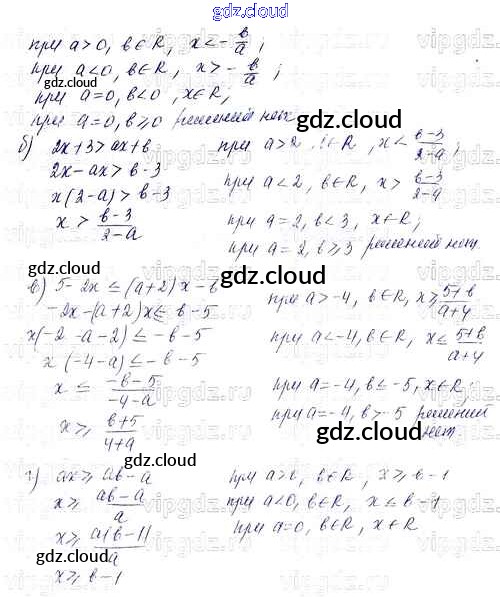 gdz.cloud
при a>0, b∈R, x<-b/a;
при a<0, b∈R, x>-b/a;
gdz.cloud
при a=0, b<0, x∈R;
при a=0, b≥0 решений нет
gdz.cloud
б) 2x+3>ax+b
2x-ax>b-3
x(2-a)>b-3
x>(b-3)/(2-a)
при a>2, b∈R, x<(b-3)/(2-a);
при a<2, b∈R, x>(b-3)/(2-a)
при a=2, b<3, x∈R;
при a=2, b≥3 решений нет.
gdz.cloud
gdz.cloud
в) 5-2x≤(a+2)x-b
-2x-(a+2)x≤-b-5
x(-2-a-2)≤-b-5
x(-4-a)≤-b-5
x≤(-b-5)/(-4-a)
x≥(b+5)/(4+a)
при a>-4, b∈R, x≥(5+b)/(a+4)
при a<-4, b∈R, x≤(5+b)/(a+4)
gdz.cloud
при a=-4, b≤-5, x∈R;
при a=-4, b>-5 решений
нет.
gdz.cloud
gdz.cloud
г) ax≥ab-a
x≥(ab-a)/a
x≥a(b-1)/a
x≥b-1
при a>0, b∈R, x≥b-1
при a<0, b∈R, x≤b-1
при a=0, b∈R, x∈R
gdz.cloud
gdz.cloud
vipgdz.ru